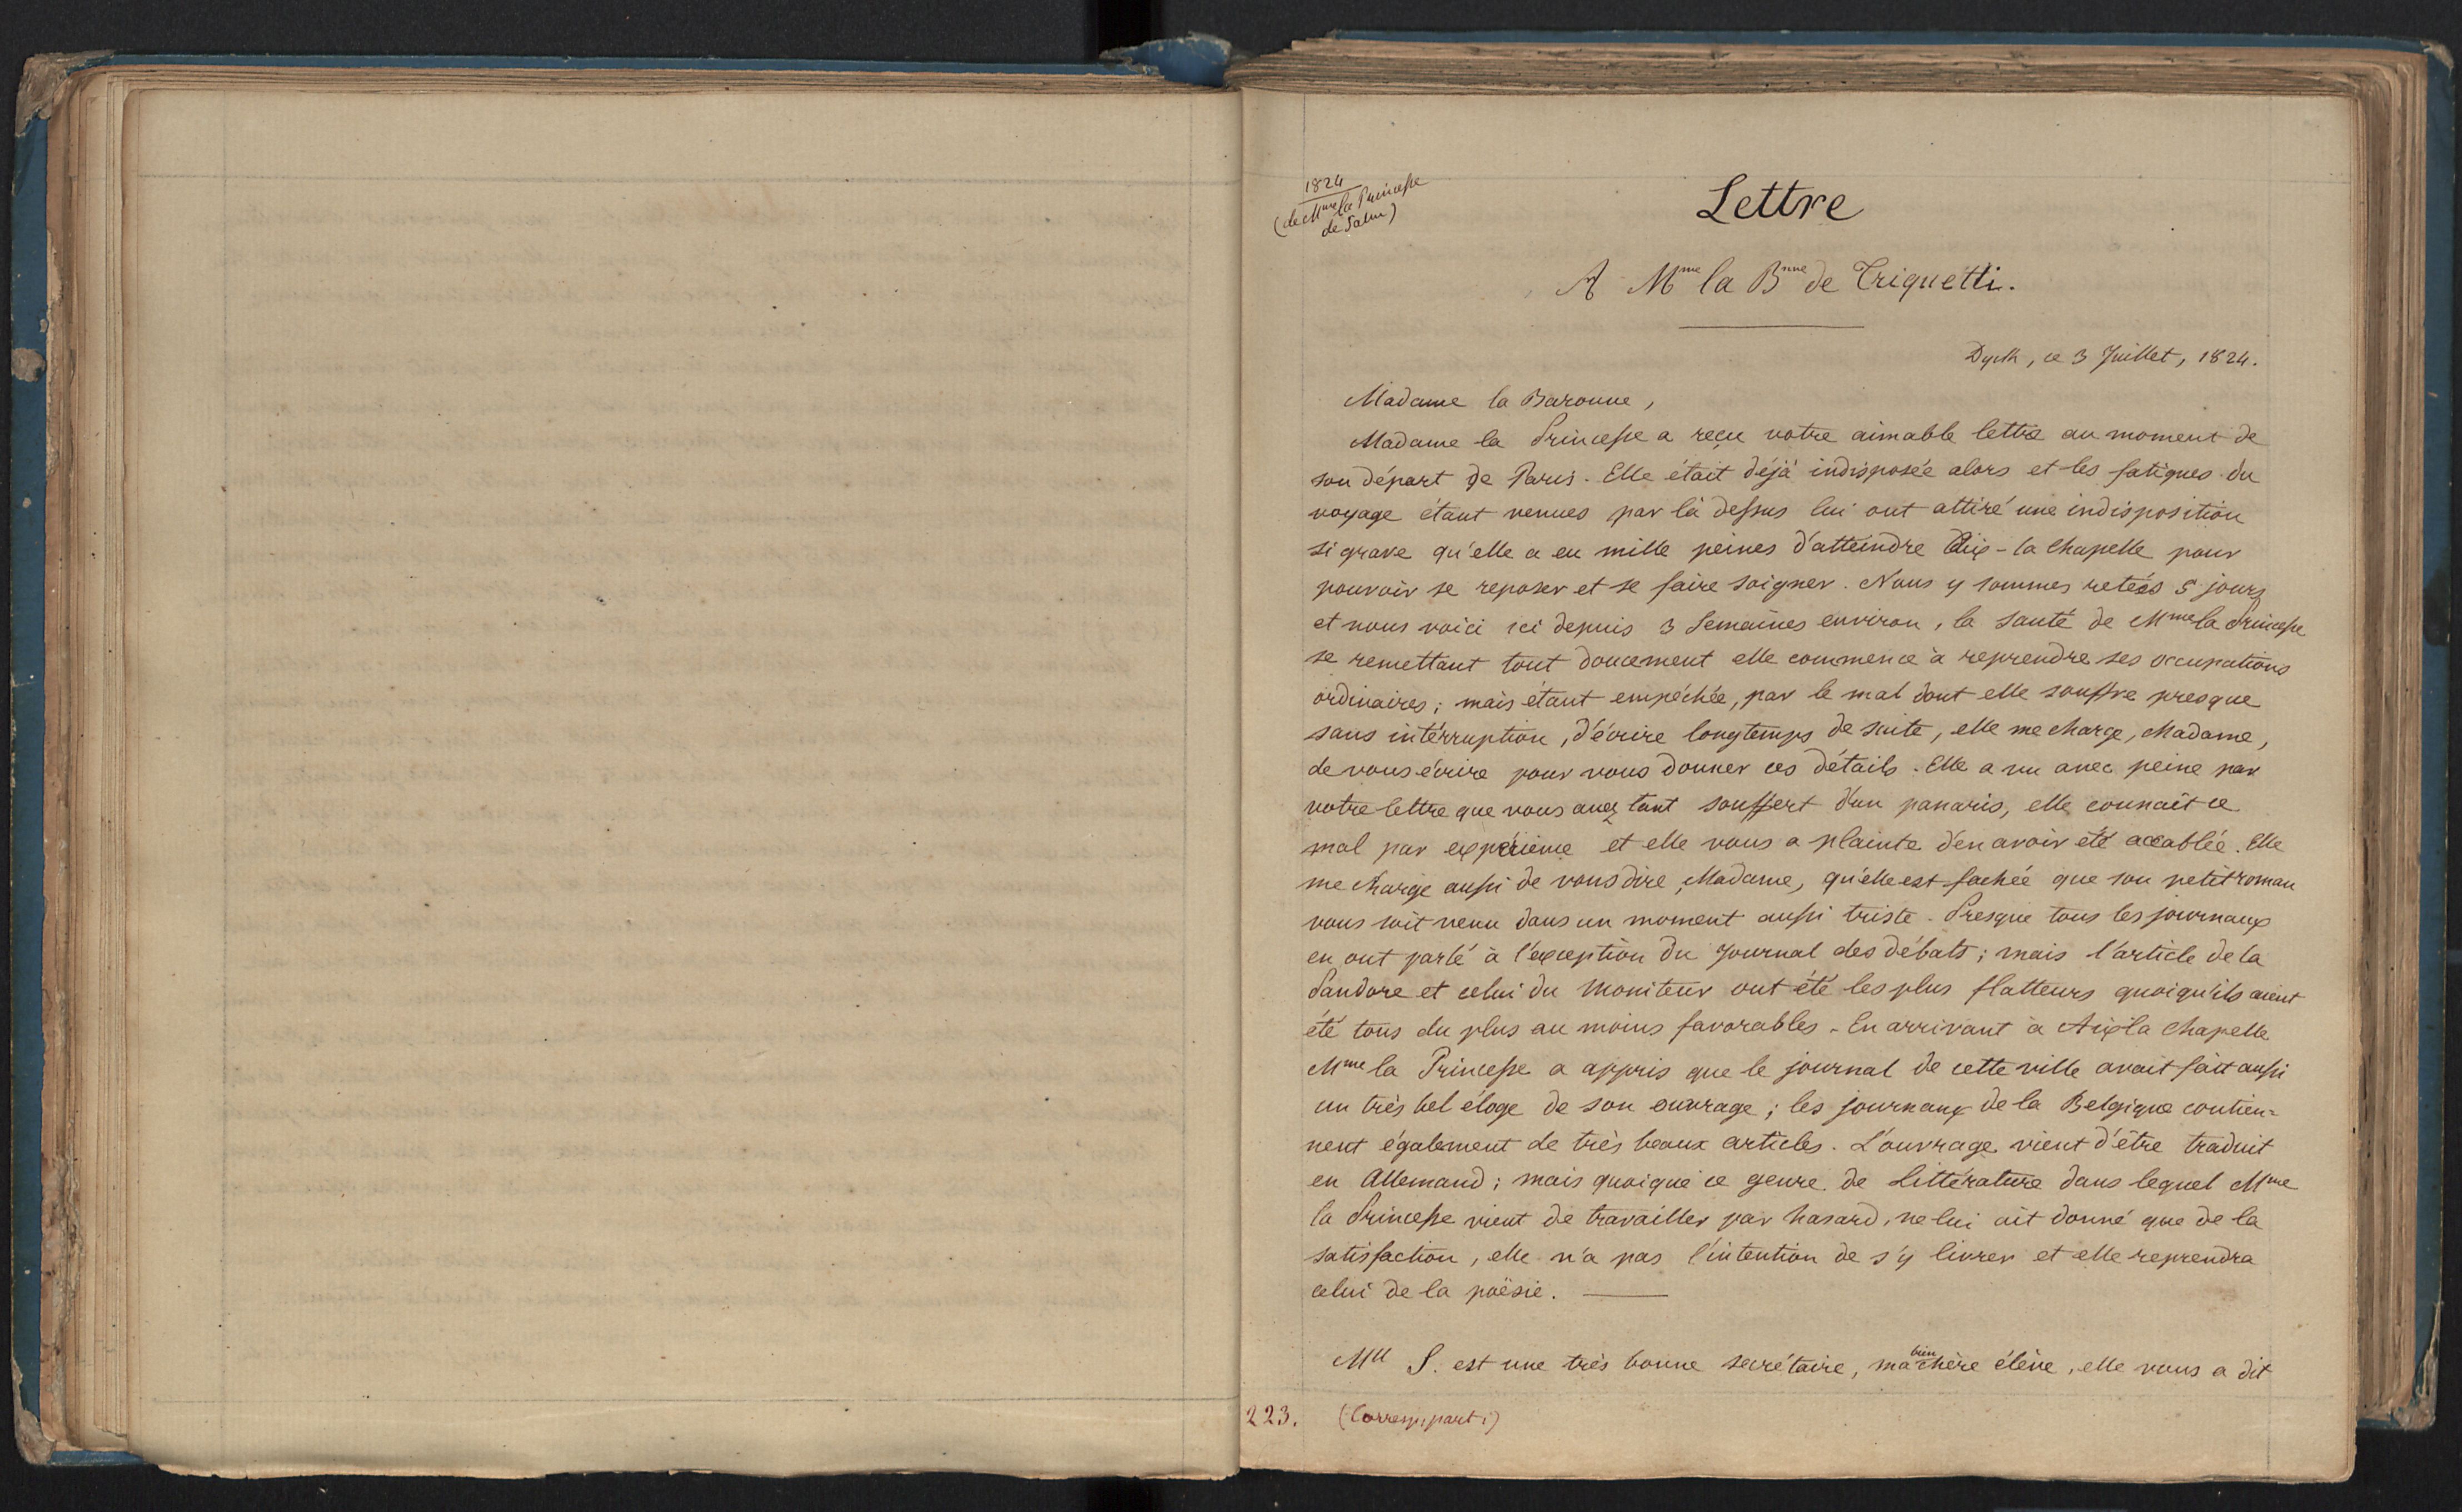 1824
(de Mme la Princesse
de Salm)
Lettre
A Mme la Bnne de Triquetti.
Dyck, ce 3 Juillet, 1824.
Madame la Baronne,
Madame la Princesse a reçu votre aimable lettre au moment de
son départ de Paris. Elle était déjà indisposée alors et les fatigues du
voyage étant venues par là dessus lui ont attiré une indisposition
si grave qu'elle a eu mille peines d'atteindre Aix-la Chapelle pour
pouvoir se reposer et se faire soigner. Nous y sommes retés 5 jours
et nous voici ici depuis 3 semaines environ, la santé de Mme la Princesse
se remettant tout doucement elle commence à reprendre ses occupations
ordinaires; mais étant empéchée, par le mal dont elle souffre presque
sans intérruption, d'écrire longtemps de suite, elle me charge, Madame,
de vous écrire pour vous donner ces détails. Elle a vu avec peine par
votre lettre que vous avez tant souffert d'un panaris, elle connait ce
mal par expérience et elle vous a plainte d'en avoir été accablée. Elle
me charge aussi de vous dire, Madame, qu'elle est fachée que son petit roman
vous soit venu dans un moment aussi triste. Presque tous les journaux
en ont parlé à l'exception du Journal des débats; mais l'article de la
Pandore et celui du Moniteur ont été les plus flatteurs quoiqu'ils aient
été tous du plus au moins favorables. En arrivant à Aix la Chapelle
Mme la Princesse a appris que le journal de cette ville avait fait aussi
un très bel éloge de son ouvrage; les journaux de la Belgique contien=
nent également de très beaux articles. L'ouvrage vient d'être traduit
en Allemand; mais quoique ce genre de Littérature dans lequel Mme
la Princesse vient de travailler par hasard, ne lui ait donné que de la
satisfaction, elle n'a pas l'intention de s'y livrer et elle reprendra
celui de la poësie.
Mll S. est une très bonne secrétaire, ma bien chère élève, elle vous a dit
223. (Corresp. part:)